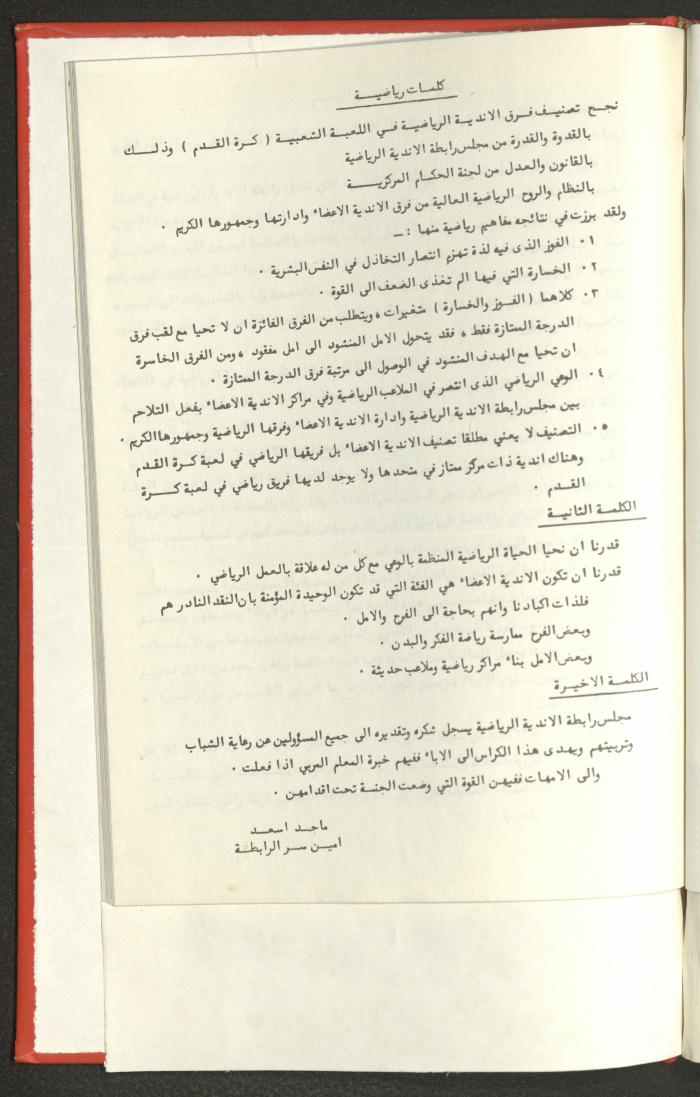 كلمات رياضية
نجح تصنيف فرق الاندية الرياضية في اللعبة الشعبية ( كرة القدم ) وذلك
بالقدوة والقدرة من مجلس رابطة الاندية الرياضية
بالقانون والعدل من لجنة الحكام المركزية
بالنظام والروح الرياضية العالية من فرق الاندية الاعضاء وادارتها وجمهورها الكريم .
ولقد برزت في نتائجه مفاهيم رياضية منها : ـ
١ . الفوز الذى فيه لذة تهزم انتصار التخاذل في النفس البشرية .
٢ . الخسارة التي فيها الم تغذى الضعف الى القوة .
٣ . كلاهما ( الفوز والخسارة ) متغيرات ، ويتطلب من الفرق الفائزة ان لا تحيا مع لقب فرق
الدرجة الممتازة فقط ، فقد يتحول الامل المنشود الى امل مفقود ، ومن الفرق الخاسرة
ان تحيا مع الهدف المنشود في الوصول الى مرتبة فرق الدرجة الممتازة .
٤ . الوعي الرياضي الذى انتصر في الملاعب الرياضية وفي مراكز الاندية الاعضاء بفعل التلاحم
بين مجلس رابطة الاندية الرياضية وادارة الاندية الاعضاء وفرقها الرياضية وجمهورها الكريم .
٥ . التصنيف لا يعني مطلقا تصنيف الاندية الاعضاء بل فريقها الرياضي في لعبة كرة القدم
وهناك اندية ذات مركز ممتاز في متحدها ولا يوجد لديها فريق رياضي في لعبة كرة
القدم .
الكلمة الثانية
قدرنا ان نحيا الحياة الرياضية المنظمة بالوعي مع كل من له علاقة بالعمل الرياضي .
قدرنا ان تكون الاندية الاعضاء هي الفئة التي قد تكون الوحيدة المؤمنة بان النقد النادر هم
فلذات اكبادنا وانهم بحاجة الى الفرح والامل .
وبعض الفرح ممارسة رياضة الفكر والبدن .
وبعض الامل بناء مراكز رياضية وملاعب حديثة .
الكلمة الاخيرة
مجلس رابطة الاندية الرياضية يسجل شكره وتقديره الى جميع المسؤولين عن رعاية الشباب
وتربيتهم ويهدى هذا الكراس الى الاباء ففيهم خبرة المعلم المربي اذا فعلت .
والى الامهات ففيهن القوة التي وضعت الجنة تحت اقدامهن .
ماجد اسعد
امين سر الرابطة